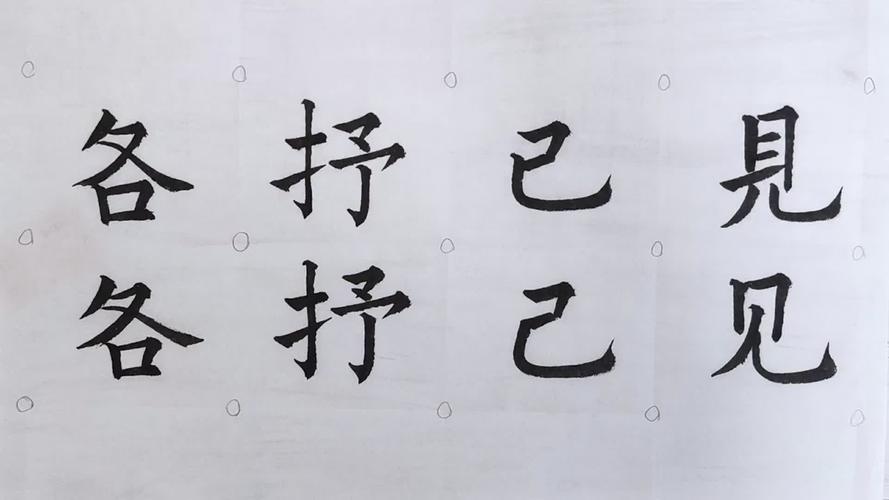 各抒已見
各抒己见